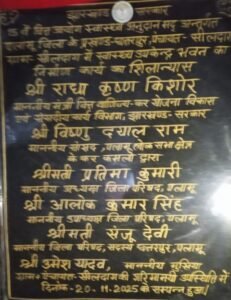 झारखण्ड
5 वें वित्त आयोग स्वास्थ्य अनुदान मद अन्तर्गत
पलामू जिला के प्रखण्ड-छतरपुर, पंचायत-सीलदाग
ग्राम-सीलदाग में स्वास्थ्य उपकेन्द्र भवन का
निर्माण कार्य का शिलान्यास
श्री राधा कृष्ण किशोर
माननीय मंत्री वित्त वाणिज्य-कर योजना विकास
एवं संसदीय कार्य विभाग, झारखण्ड-सरकार
श्री विष्णु दयाल राम
माननीय सांसद, पलामू लोक सभा क्षेत्र
के कर कमलो द्वारा
श्रीमती प्रतिमा कुमारी
माननीय अध्यक्षा जिला परिषद, पलामू
श्री आलोक कुमार सिंह
माननीय उपाध्यक्ष जिला परिषद, पलामू
श्रीमती संजू देवी
माननीय जिला परिषद, सदस्य छतरपुर, पलामू
श्री उमेश यादव, माननीय मुखिया
ग्राम+पंचायत सीलदाग की गरिमामयी उपस्थिति में
दिनांक-20-11-2025 को सम्पन्न हुआ।